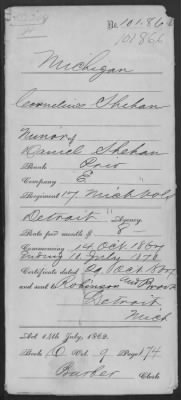 No. 101.866
101866
Michigan
Cornelius Shehan
Minor of
Daniel Shehan
Rank Priv
Company E "
Regiment 17. Mich Vols
Detroit Agency
Rate per month $ 8
Commencing 14 Oct 1867
Ending 18 July 1878
Certificate dated Oct 1867
and sent to Robinson and Brooks
Detroit
Mich
Act 14th July, 1862.
Book O Vol. 9 Page 174
Clerk